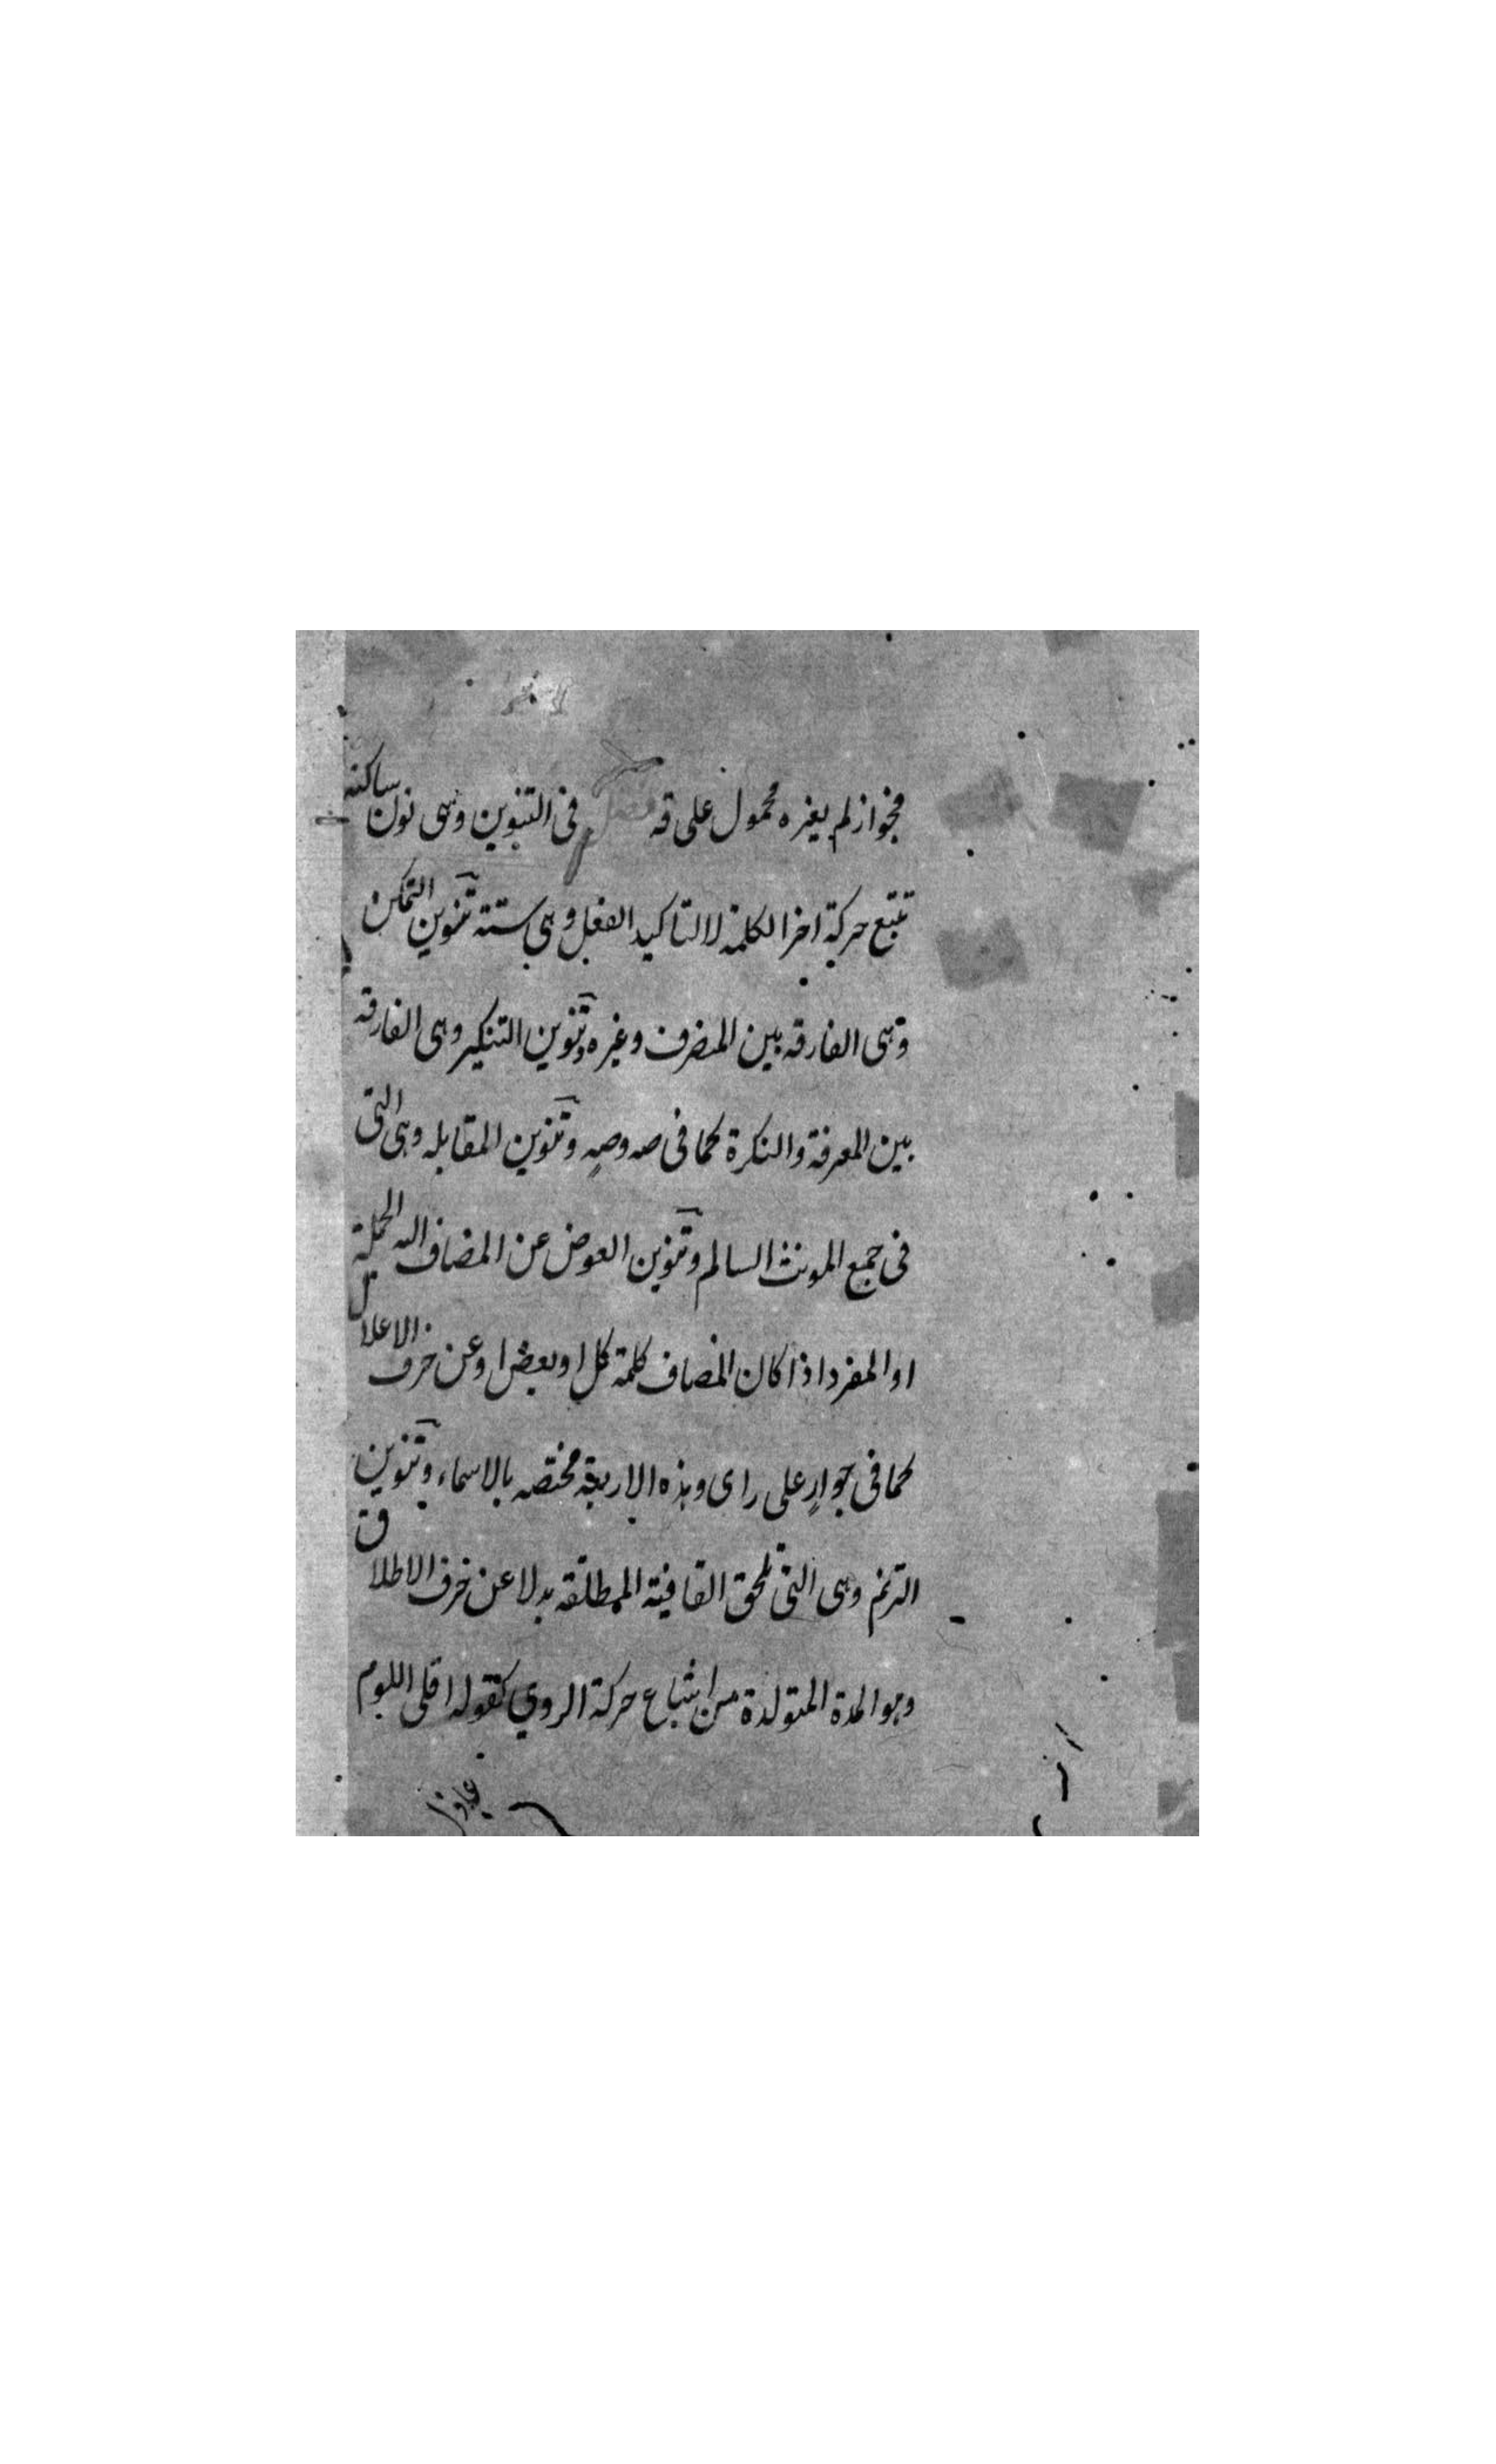 فجواز لم يغزه محمول على قه فصل في التنوين وهى نون ساكنة
تتبع حركة اخر الكلمة لا لتاكيد الفعل وهى ستة تنوين التمكن
وهى الفارقه بين المنصرف وغيره وتنوين التنكير وهى الفارقه
بين المعرفة والنكرة كما في صه وصهٍ وتنوين المقابله وهى التى
في جمع المونث السالم وتنوين العوض عن المضاف اليه الجملة
او المفرد اذا كان المضاف كلمة كل او بعض او عن حرف الاعلال
كما في جوارٍ على راى وهذه الاربعة مختصه بالاسماء وتنوين
الترنم وهى التى تلحق القافية المطلقة بدلا عن حرف الاطلاق
وهو المدة المتولدة من اشباع حركة الروي كقوله اقلى اللوم
عاذل